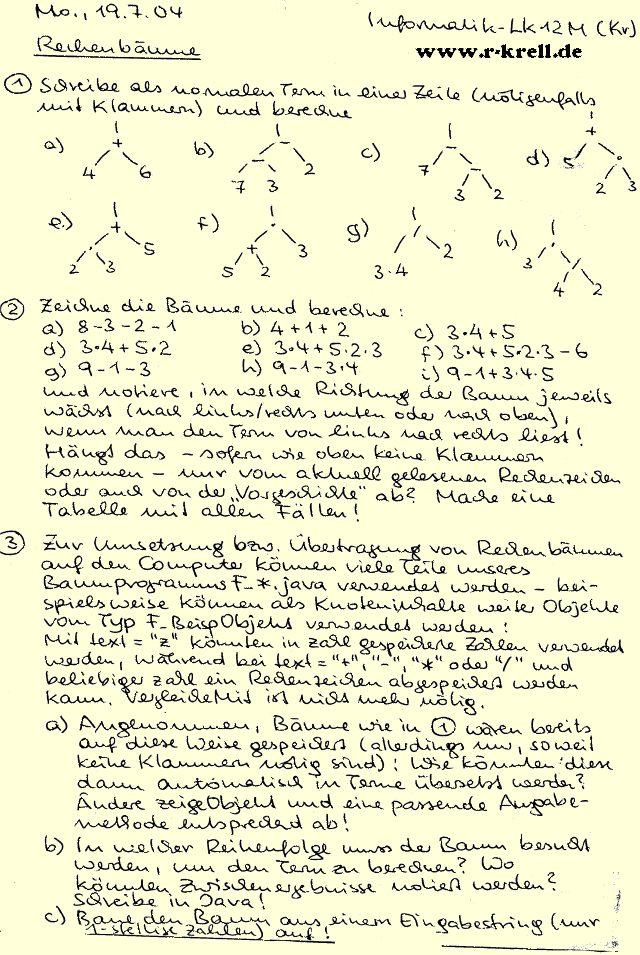 Mo., 19.7.04
Informatik-LK 12M (Kr)
Rechenbäume
www.r-krell.de
① Schreibe als normalen Term in einer Zeile (nötigenfalls
mit Klammern) und berechne
a) + 4 6
b) − − 7 3 2
c) − 7 − 3 2
d) + 5 · 2 3
e) + · 2 3 5
f) · + 5 2 3
g) / 3·4 2
h) · 3 / 4 2
② Zeichne die Bäume und berechne:
a) 8-3-2-1 b) 4+1+2 c) 3·4+5
d) 3·4+5·2 e) 3·4+5·2·3 f) 3·4+5·2·3-6
g) 9-1-3 h) 9-1-3·4 i) 9-1+3·4·5
und notiere, in welche Richtung der Baum jeweils
wächst (nach links/rechts unten oder nach oben),
wenn man den Term von links nach rechts liest!
Hängt das - sofern wie oben keine Klammern
kommen - nur vom aktuell gelesenen Rechenzeichen
oder auch von der „Vorgeschichte" ab? Mache eine
Tabelle mit allen Fällen!
③ Zur Umsetzung bzw. Übertragung von Rechenbäumen
auf den Computer können viele Teile unseres
Baumprogramms F_*.java verwendet werden - bei-
spielsweise können als Knoteninhalte weiter Objekte
vom Typ F_BeispObjekt verwendet werden:
Mit text = "z" könnten in zahl gespeicherte Zahlen verwendet
werden, während bei text = "+", "-", "*" oder "/" und
beliebiger zahl ein Rechenzeichen abgespeichert werden
kann. VergleicheMit ist nicht mehr nötig.
a) Angenommen, Bäume wie in ① wären bereits
auf diese Weise gespeichert (allerdings nur, soweit
keine Klammern nötig sind): Wie könnten diese
dann automatisch in Terme übersetzt werden?
Ändere zeigeObjekt und eine passende Ausgabe-
methode entsprechend ab!
b) In welcher Reihenfolge muss der Baum besucht
werden, um den Term zu berechnen? Wo
könnten Zwischenergebnisse notiert werden?
Schreibe in Java!
c) Baue den Baum aus einem Eingabestring (nur
1-stellige Zahlen) auf!